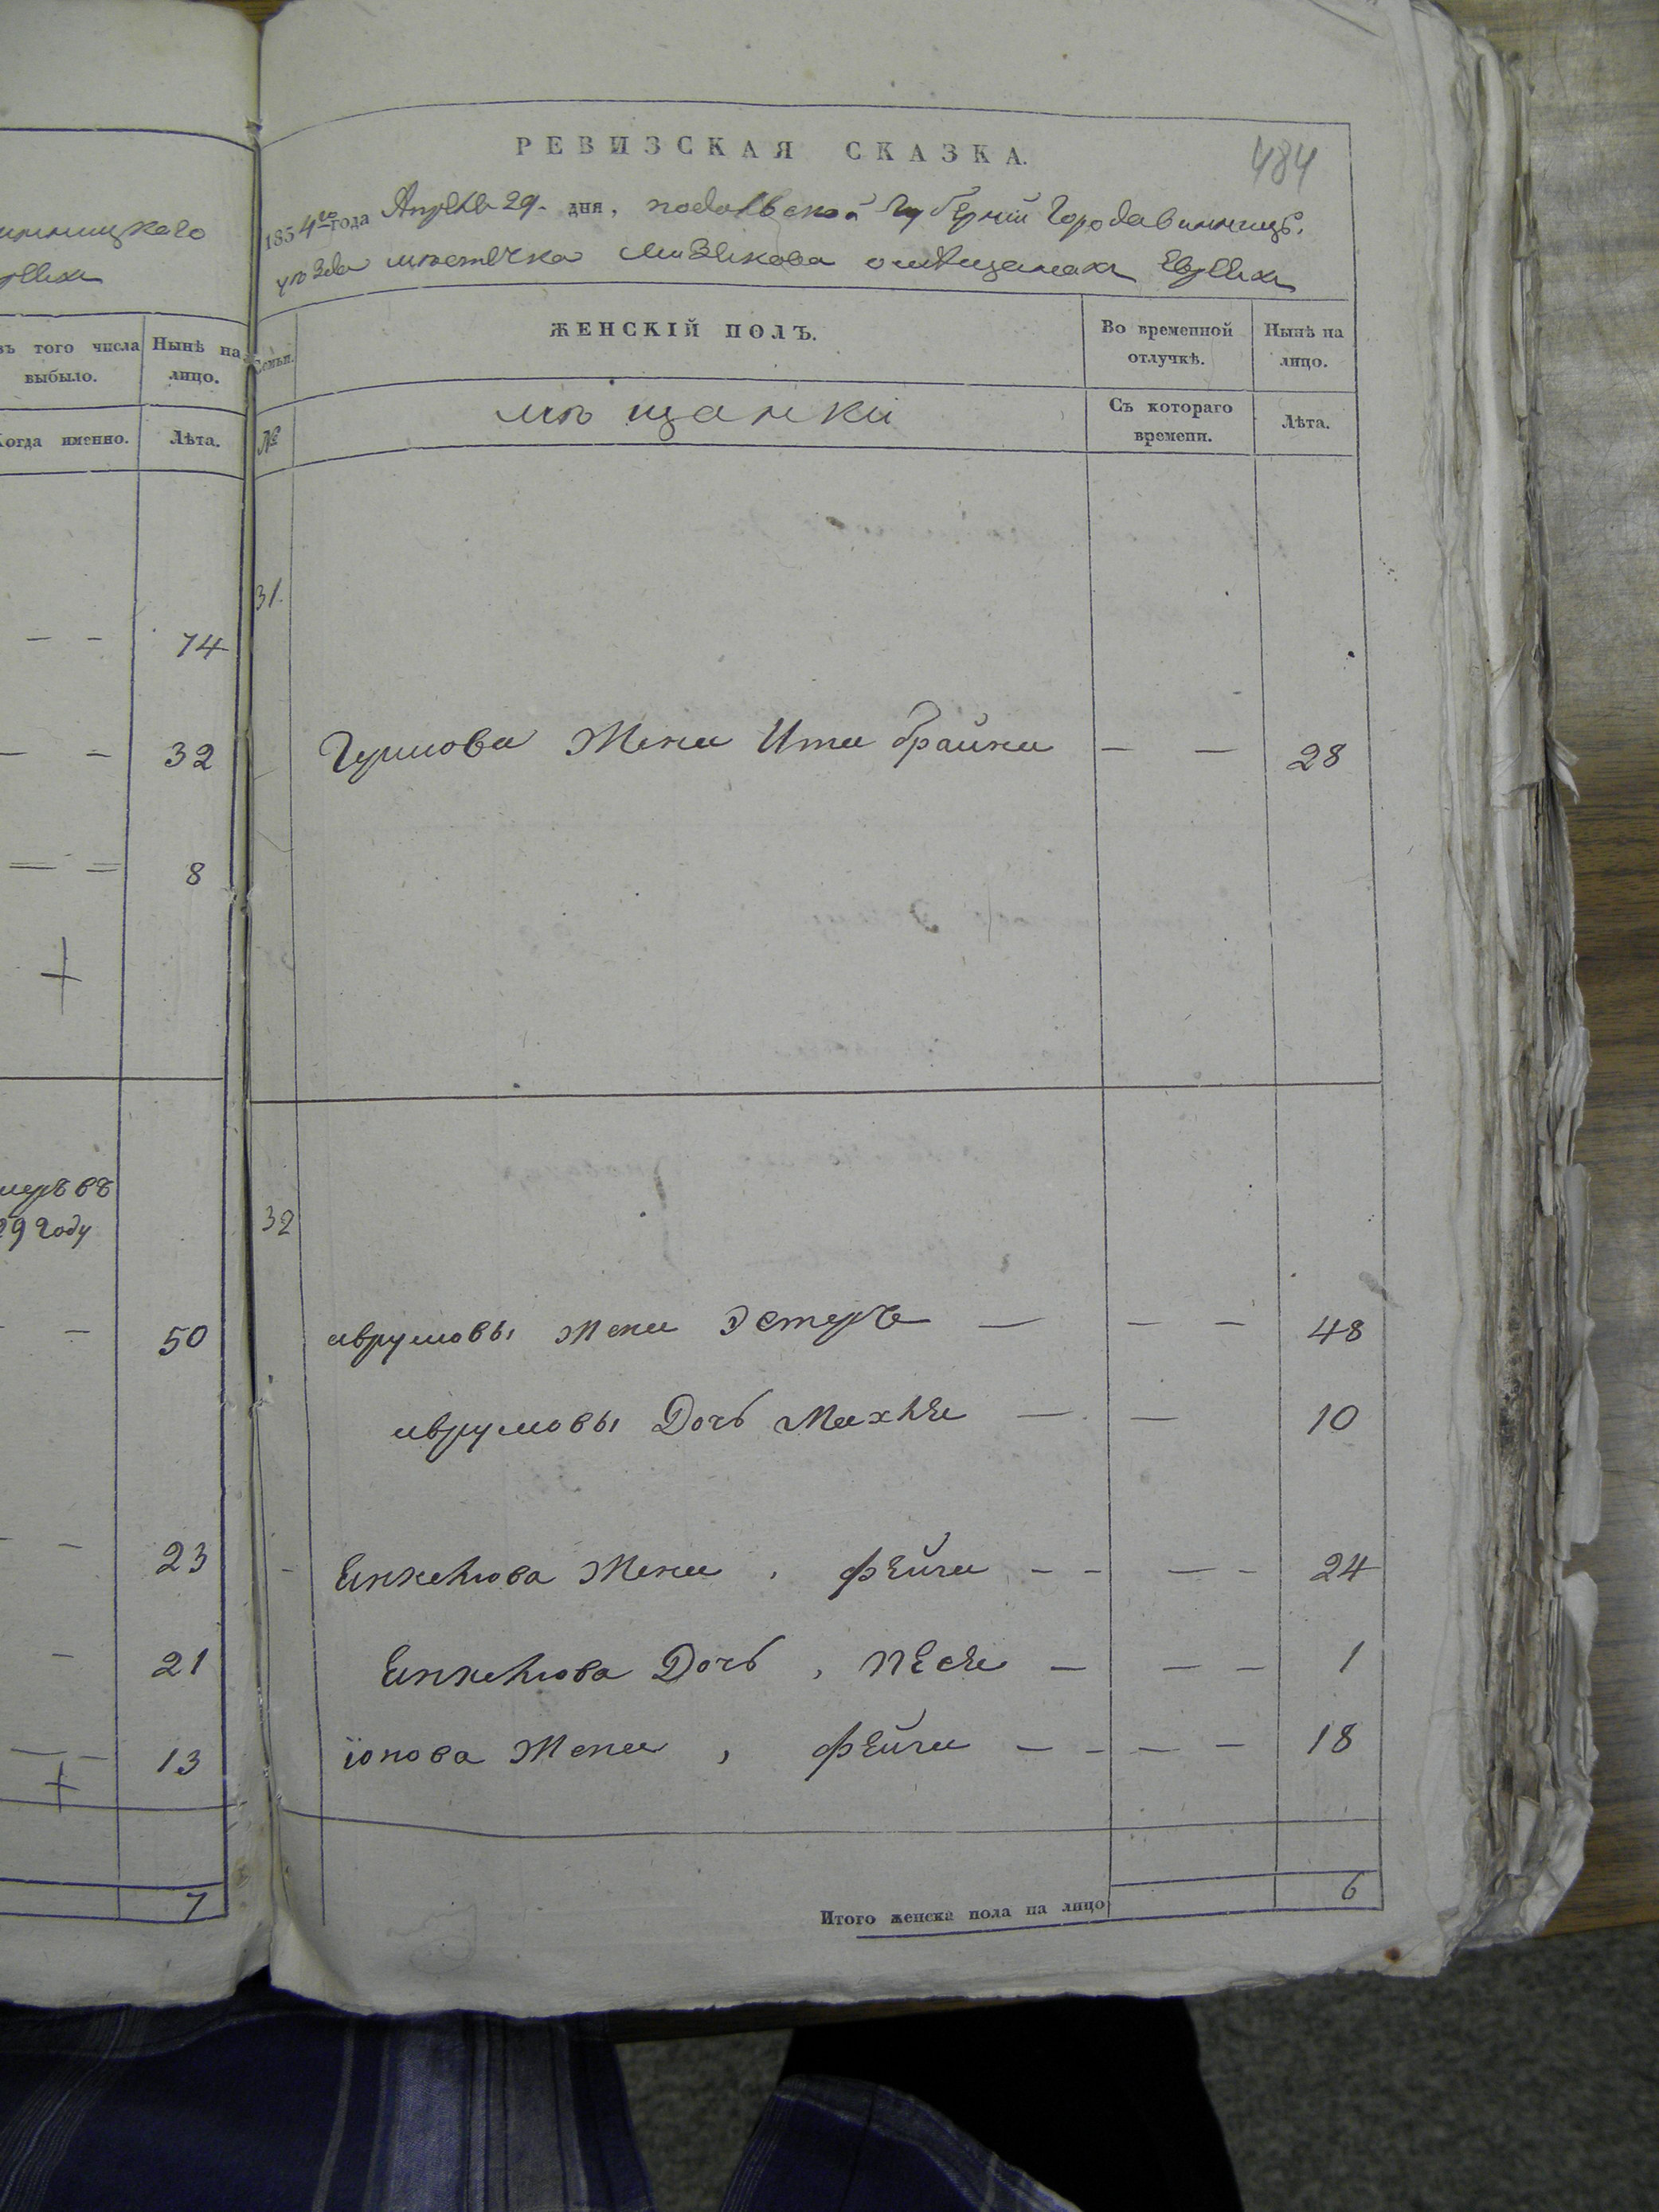 484
РЕВИЗСКАЯ СКАЗКА.
1854го года Апреля 29. дня, подольской Губернии Города винниц:
уезда местечка Мизякова о мещанах Евреях
ъ того числа выбыло.
Нынѣ на лицо.
Когда именно.
Лѣта.
74
32
8
29 году
50
23
21
13
7
Семьи.
ЖЕНСКІЙ ПОЛЪ.
Во временной отлучкѣ.
Нынѣ на лицо.
№
мѣщанки
Съ котораго времени.
Лѣта.
31.
жена Ита Брайна — — 28
32
аврумовы жена Эстеръ — — — 48
аврумовы Дочь Махля — — 10
Янкелюва жена, фейга — — — — 24
Янкелюва Дочь, песя — — — 1
іонова жена, фейга — — — — 18
Итого женска пола на лицо
6